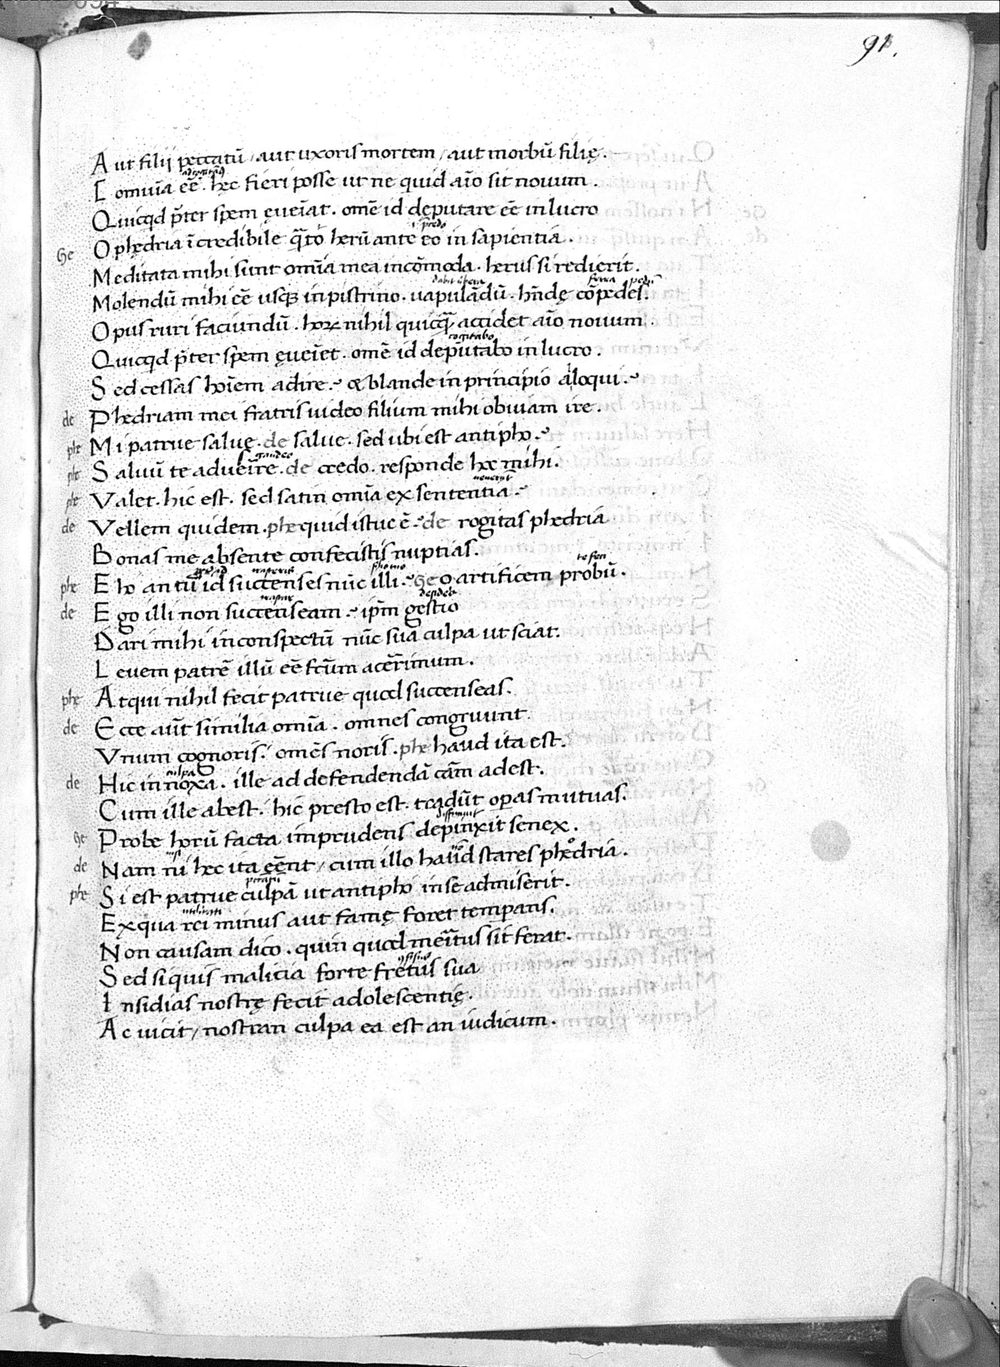 91.
Aut filii peccatū / aut uxoris mortem / aut morbū filię.
Comuīa eē . hęc fieri posse ut ne quid aīo sit nouum .
Quicqd p̄ter spem eueīat . omē id deputare eē in lucro
Ge O phędria īcredibile q̄tō herū ante eo in sapientia .
Meditata mihi sunt omīa mea incōmoda . herus si redierit .
Molendū mihi eē usq; in pistrino . uapulādū . hn̄dę cōpedes .
Opus ruri faciundū . hoꝝ nihil quicq̄ accidet aīo nouum .
Quicqd p̄ter spem eueīet . omē id deputabo in lucro .
cogitabo
Sed cessas hoīem adire . & blande in principio aloqui .
de Phędriam mei fratris uideo filium mihi obuiam ire .
phe Mi patrue salue . de salue . sed ubi est antipho .
phe Saluū te adueīre . de credo . responde hoc mihi .
phe Valet . hic est . sed satin omīa ex sententia .
de Vellem quidem . phe quid istuc ē . de rogitas phedria
Bonas me absente confecistis nuptias .
phe Eho an tu id succenses nūc illi . Ge o artificem probū .
de Ego illi non succenseam . ip̄m gestio
Dari mihi in conspectū nūc sua culpa ut sciat .
Leuem patrē illū eē fcūm acērimum .
phe Atqui nihil fecit patrue quod succenseas .
de Ecce aūt similia omīa . omnes congruunt .
Vnum cognoris . omēs noris . phe haud ita est .
culpa
de Hic in noxa . ille ad defendendā cām adest .
Cum ille abest . hic presto est . tradūt opas mutuas .
Ge Probe horū facta imprudens depinxit senex .
de Nam ni hęc ita eēnt / cum illo haud stares phedria .
phe Si est patrue culpā ut antipho in se admiserit .
Ex qua rei minus aut famę foret temperans .
Non causam dico . quin quod meritus sit ferat .
Sed si quis malicia forte fretus sua
Insidias nostrę fecit adolescentię .
Ac uicit / nostran culpa ea est an iudicum .